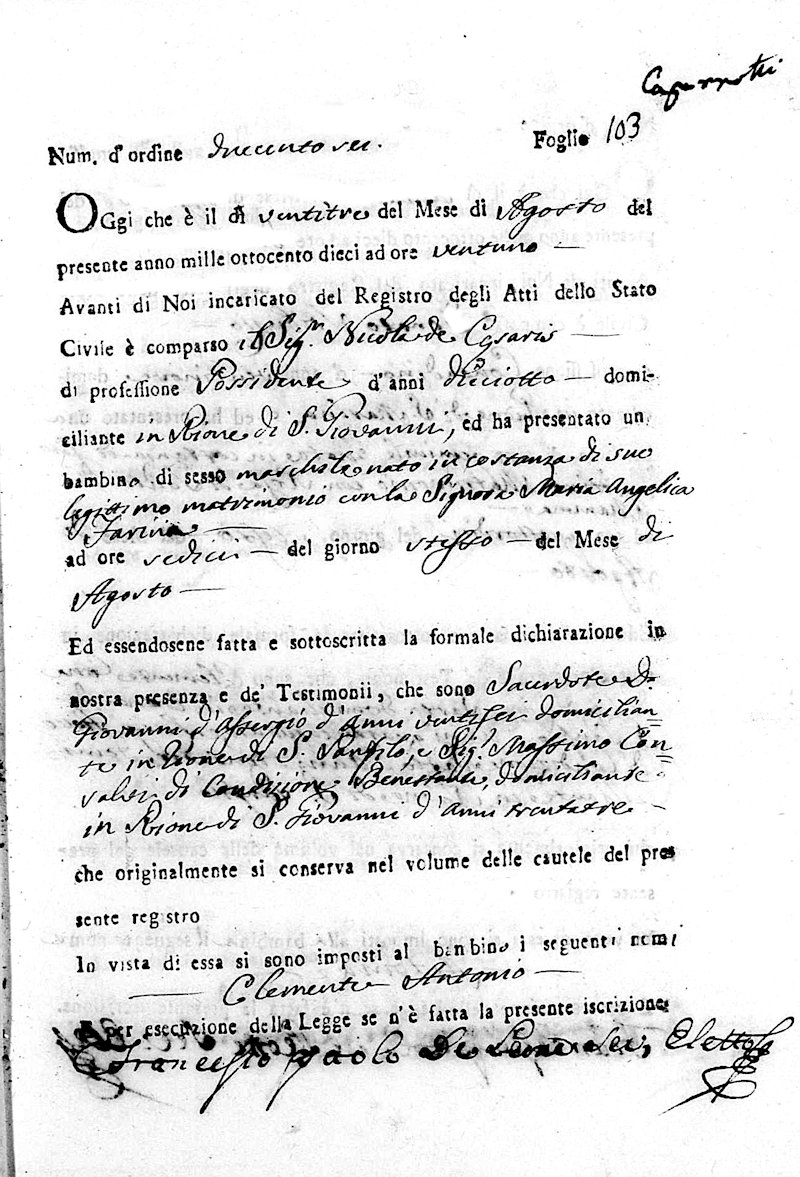 Num. d'ordine duecento sei. Foglio 103
OGgi che è il dì ventitre del Mese di Agosto del
presente anno mille ottocento dieci ad ore ventuno
Avanti di Noi incaricato del Registro degli Atti dello Stato
Civile è comparso il Sig.r Nicola de Cesaris
di professione Possidente d'anni dieciotto domi-
ciliante in Rione di S. Giovanni, ed ha presentato un
bambino di sesso maschile nato in costanza di suo
legittimo matrimonio con la Signora Maria Angelica
Farina
ad ore sedici del giorno stesso del Mese di
Agosto
Ed essendosene fatta e sottoscritta la formale dichiarazione in
nostra presenza e de' Testimonii, che sono Sacerdote D.
Giovanni d'Assergio d'Anni ventisei domicilian=
te in Rione di S. Panfilo, e Sig.r Massimo Con=
salvi di Condizione Benestante, domiciliante
in Rione di S. Giovanni d'Anni trentatre
che originalmente si conserva nel volume delle cautele del pre=
sente registro
In vista di essa si sono imposti al banbino i seguenti nomi
Clemente Antonio
E per esecuzione della Legge se n'è fatta la presente iscrizione
Francesco Paolo De Leonardis, Eletto